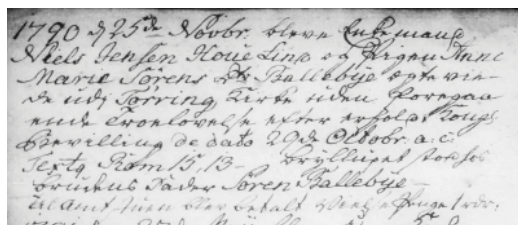 1790 d 25de Novbr. bleve Enkemand
Niels Jensen Houe Lind og Pigen Anne
Marie Sørens Dtr Ballebye ægte vie-
de udi Tørring Kirke uden foregaa
ende Troelovelse efter erholdt Kongl
Bevilling de dato 29de Octobr. a: c:
Text Rom 15, 13 - Brylluppet stod hos
Brudens Fader Søren Ballebye -
til Amtstuen blev betalt Penge 1 rdr.